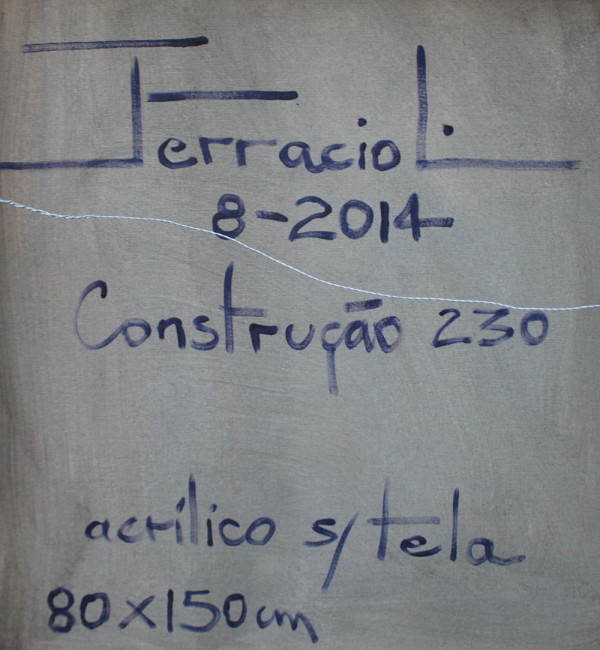 J. Ferraciol.
8-2014
Construção 230
acrílico s/ tela
80x150cm